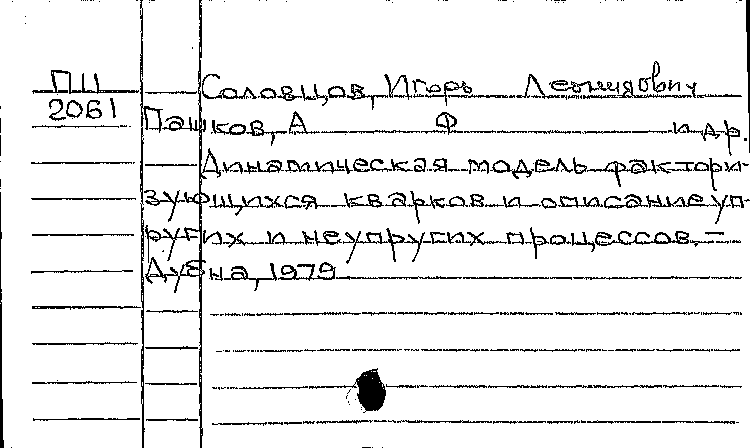 П11
2061
Соловцов, Игорь Леонидович
Пашков, А Ф и др.
Динамическая модель фактори-
зующихся кварков и описание уп-
ругих и неупругих процессов, –
Дубна, 1979